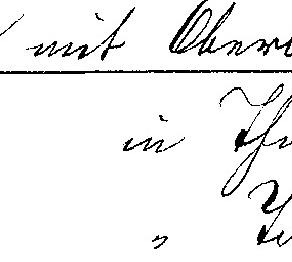 mit Ober
in Th
„